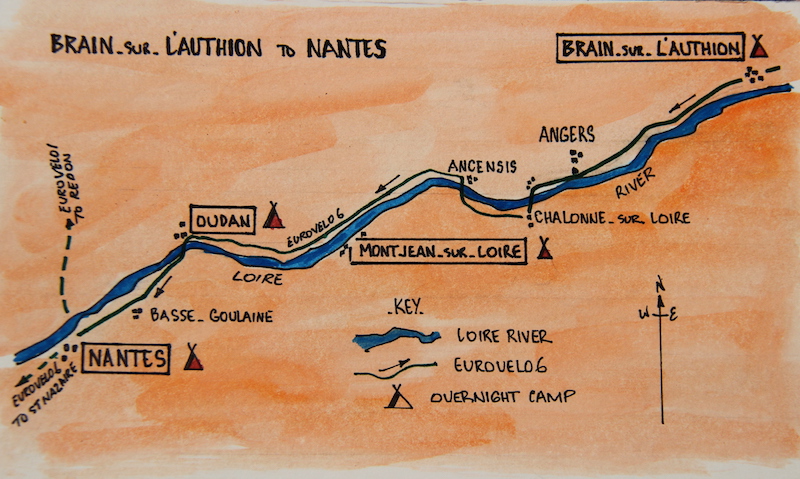 BRAIN-SUR-L'AUTHION TO NANTES
BRAIN-SUR-L'AUTHION
ANGERS
ANCENSIS
RIVER
EUROVELO1
TO REDON
OUDAN
EUROVELO6
CHALONNE-SUR LOIRE
MONTJEAN-SUR-LOIRE
LOIRE
BASSE-GOULAINE
NANTES
EUROVELO6
TO ST NAZAIRE
-KEY-
LOIRE RIVER
EUROVELO6
OVERNIGHT CAMP
N
W E